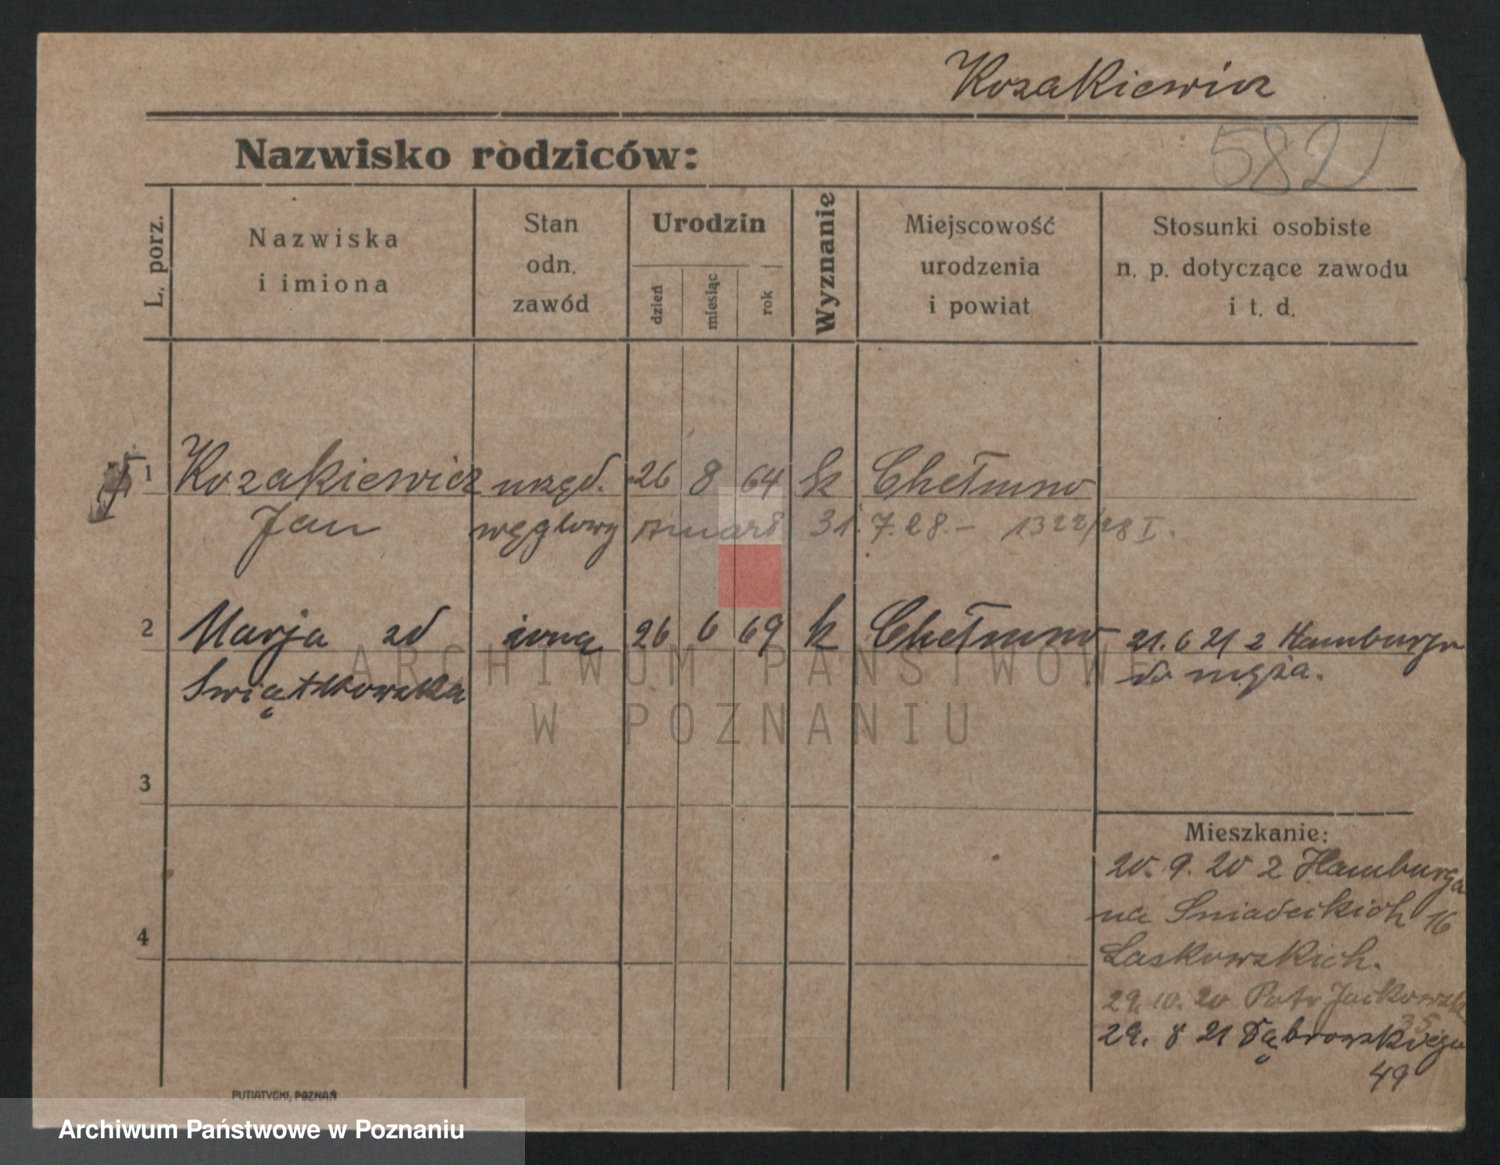 Kozakiewicz
582
Nazwisko rodziców:
L. porz.
Nazwiska
i imiona
Stan
odn.
zawód
Urodzin
dzień
miesiąc
rok
Wyznanie
Miejscowość
urodzenia
i powiat
Stosunki osobiste
n. p. dotyczące zawodu
i t. d.
1 Kozakiewicz urzęd. 26 8 64 k Chełmno
Jan węglowy zmarł 31.7.28.- 1322/28 I.
2 Marja zd żona 26 6 69 k Chełmno 21.6 21 z Hamburga
Świątkowska do męża.
ARCHIWUM PAŃSTWOWE
W POZNANIU
3
Mieszkanie:
20. 9. 20 z Hamburga
na Śniadeckich 16
4
Laskowskich.
29. 10. 20 Patr Jackowsk
35
29. 8 21 Dąbrowskiego
49
PUTIATYCKI, POZNAŃ
Archiwum Państwowe w Poznaniu